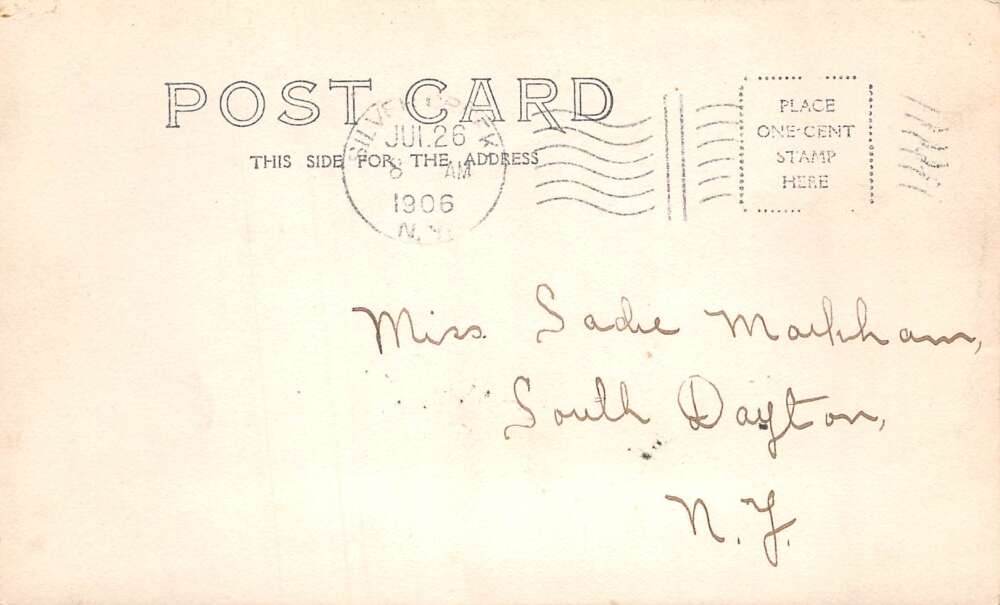 POST CARD
THIS SIDE FOR THE ADDRESS
SILVER CREEK
JUL 26
8 AM
1906
N.Y.
PLACE
ONE-CENT
STAMP
HERE
Miss. Sadie Markham,
South Dayton,
N.Y.